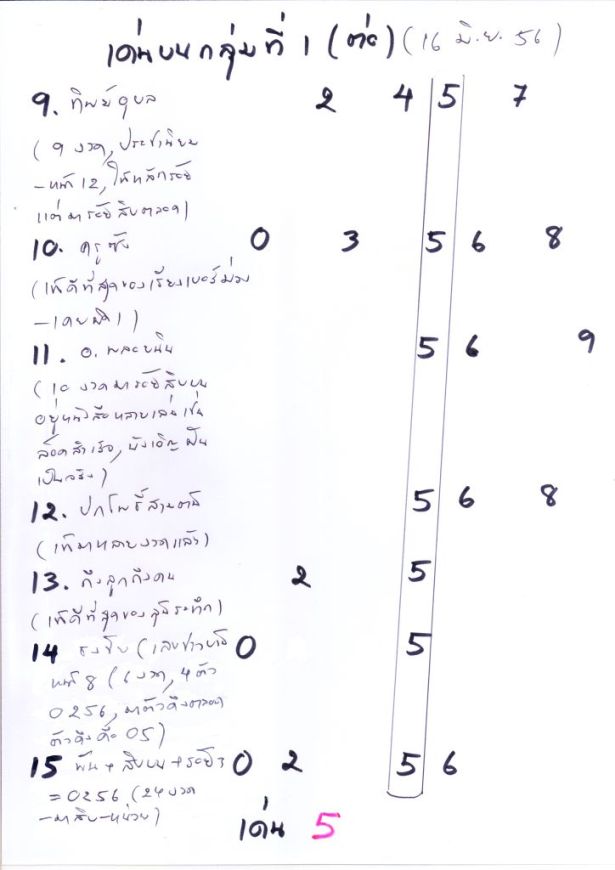 เด่นบน กลุ่มที่ 1 (ต่อ) (16 มิ.ย. 56)
9. ทิพย์อุบล 2 4 5 7
(9 งวด, ประชานิยม
-หน้า 12, ให้หลักร้อย
แต่มาร้อยสิบตลอด)
10. ครูซัง 0 3 5 6 8
(เพ้ดีที่สุดของเรียงเบอร์ม่วง
11. อ. พลอยนิน 5 6 9
(10 งวดมาร้อยสิบบน
อยู่หนังสือหลายเล่มเช่น
ล็อคสำเร็จ, บังเอิญฝัน
เป็นจริง)
12. ปกโพธิ์สามต้น 5 6 8
(เพ้มาหลายงวดแล้ว)
13. ถึงลูกถึงคน 2 5
(เพ้ดีที่สุดของลุ้นระทึก)
14 0 5
หน้า 8 (6 งวด, 4 ตัว
0256, มาตัวดึงตลอด
ตัวดึงคือ 05)
15 พัน + สิบบน + ร้อย 3 0 2 5 6
= 0256 (24 งวด
-มาสิบ-หน่วย)
เด่น 5